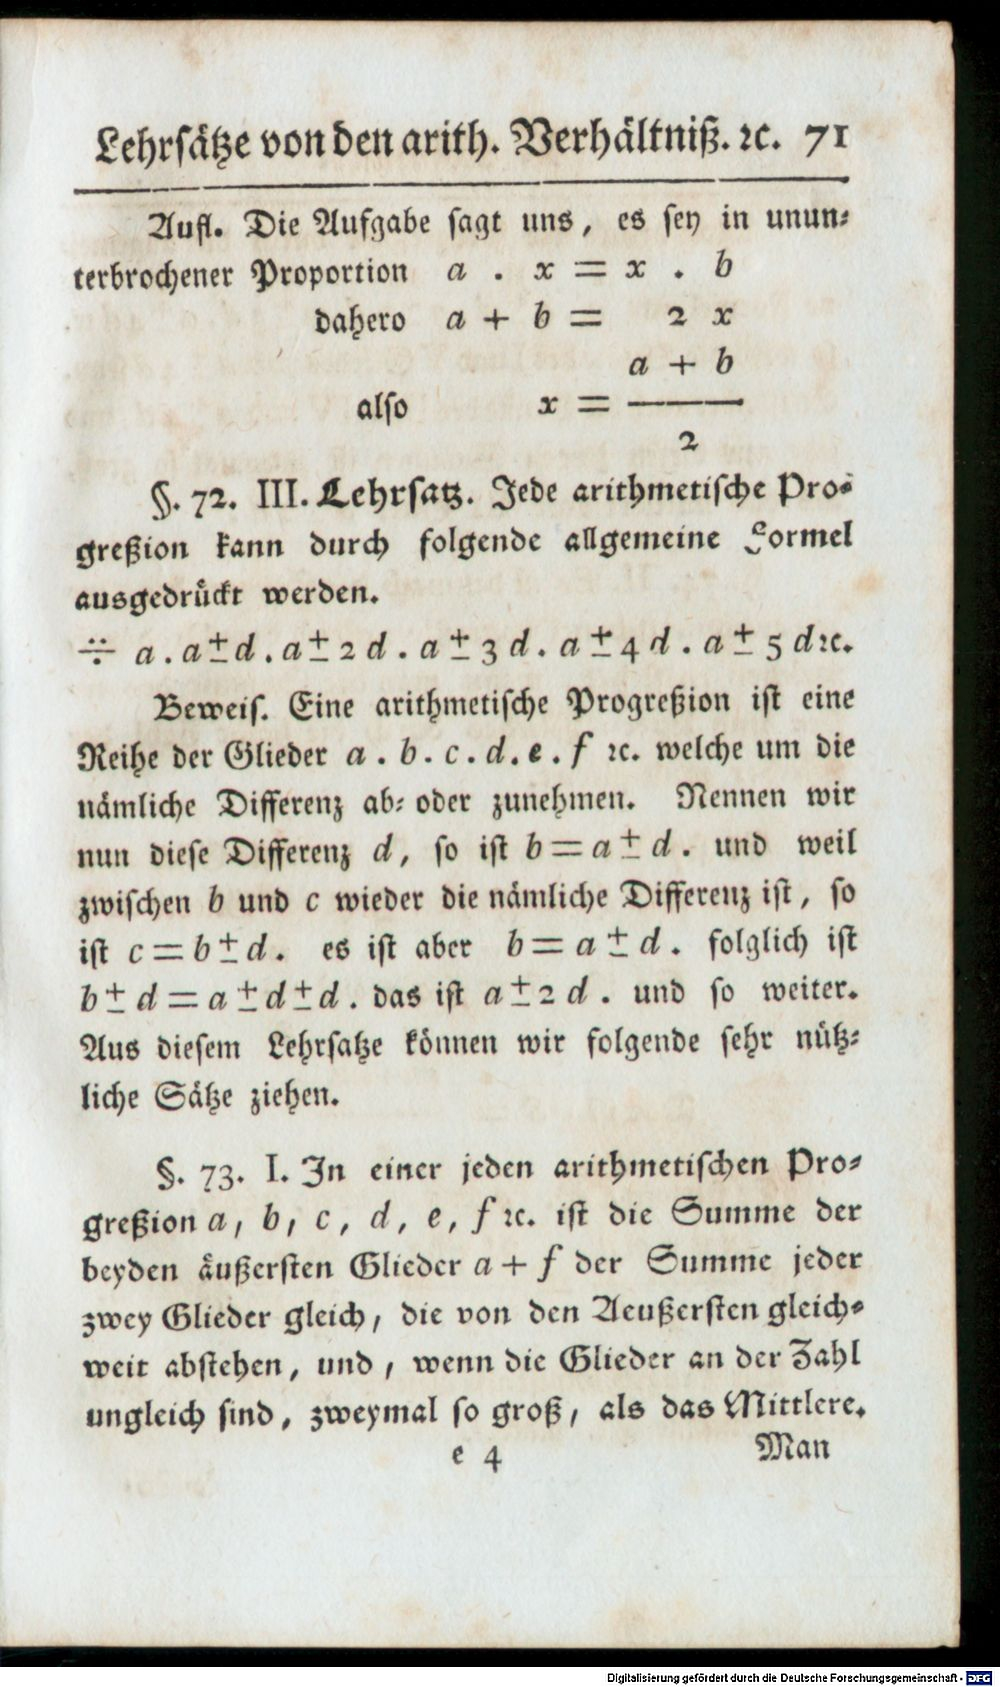 Lehrsätze von den arith. Verhältniß. ꝛc. 71
Aufl. Die Aufgabe sagt uns, es sey in unun-
terbrochener Proportion a . x = x . b
dahero a + b = 2 x
a + b
also x = ———
2
§. 72. III. Lehrsatz. Jede arithmetische Pro-
greßion kann durch folgende allgemeine Formel
ausgedrückt werden.
÷ a . a ± d . a ± 2 d . a ± 3 d . a ± 4 d . a ± 5 d ꝛc.
Beweis. Eine arithmetische Progreßion ist eine
Reihe der Glieder a . b . c . d . e . f ꝛc. welche um die
nämliche Differenz ab- oder zunehmen. Nennen wir
nun diese Differenz d, so ist b = a ± d . und weil
zwischen b und c wieder die nämliche Differenz ist, so
ist c = b ± d . es ist aber b = a ± d . folglich ist
b ± d = a ± d ± d . das ist a ± 2 d . und so weiter.
Aus diesem Lehrsatze können wir folgende sehr nütz-
liche Sätze ziehen.
§. 73. I. In einer jeden arithmetischen Pro-
greßion a, b, c, d, e, f ꝛc. ist die Summe der
beyden äußersten Glieder a + f der Summe jeder
zwey Glieder gleich, die von den Aeußersten gleich-
weit abstehen, und, wenn die Glieder an der Zahl
ungleich sind, zweymal so groß, als das Mittlere.
e 4 Man
Digitalisierung gefördert durch die Deutsche Forschungsgemeinschaft - DFG